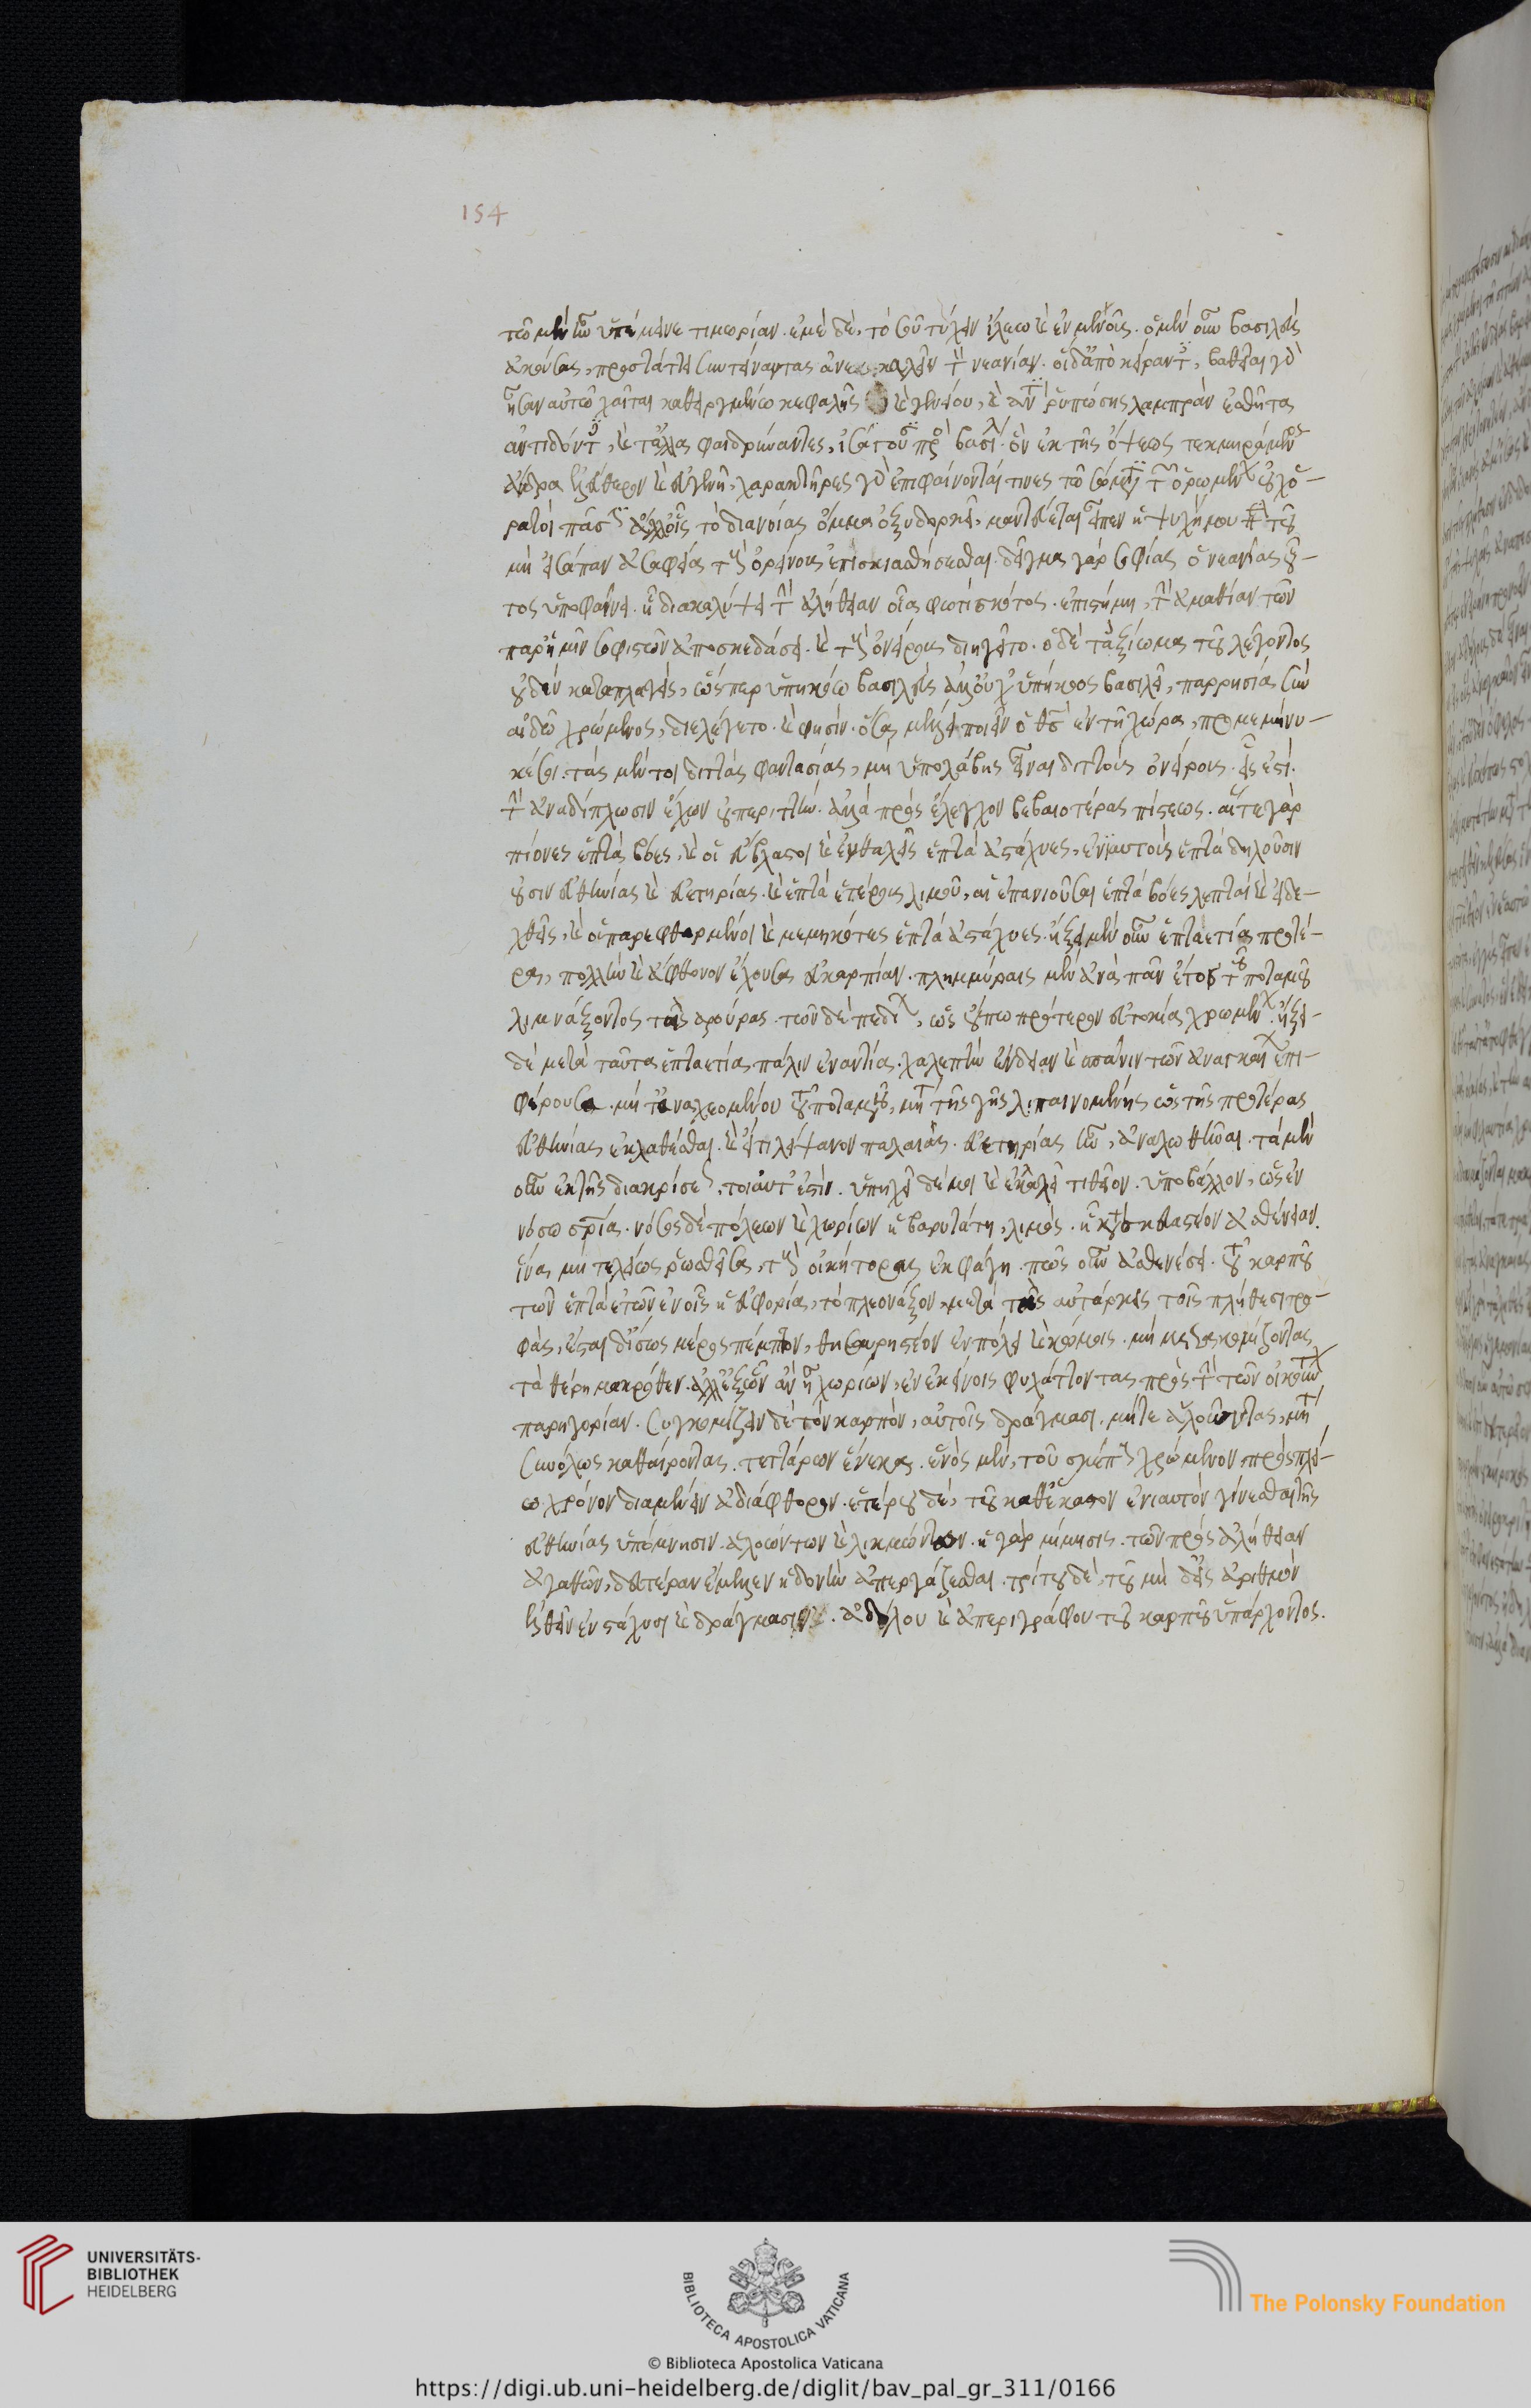 τῷ μὲν οὖν ὑπέμεινε τιμωρίαν. ἐμὲ δὲ, τὸ σοῦ τυχεῖν ἵλεω καὶ εὐμενοῦς. ὁ μὲν οὖν βασιλεὺς
ἀκούσας, προστάττει συντείναντας ἀνακαλεῖν τὸν νεανίαν. οἱ δ' ἀποκείραντες, βαθεῖαι γὰρ
ἦσαν αὐτῷ χαῖται καθειργμένῳ κεφαλῆς καὶ γενείου, καὶ ἀντὶ ῥυπώσης λαμπρὰν ἐσθῆτα
ἀντιδόντες, καὶ τἄλλα φαιδρύναντες, πρὸς βασιλέα. ὃν ἐκ τῆς ὄψεως τεκμηράμενος
ἄνδρα ἐλεύθερον καὶ εὐγενῆ, χαρακτῆρες γὰρ ἐπιφαίνονταί τινες τῷ σώματι τῶν ὁρωμένων οὐχ ὁ-
ρατοὶ πᾶσιν ἀλλ' οἷς τὸ διανοίας ὄμμα ὀξυδορκεῖ, μαντεύεται εἶπεν ἡ ψυχή μου περὶ τοῦ
μὴ εἰσάπαν ἀσαφείᾳ τοὺς ὀνείρους ἐπισκιασθήσεσθαι. δεῖγμα γὰρ σοφίας ὁ νεανίας οὗ-
τος ὑποφαίνει. ἢ διακαλύψει τὴν ἀλήθειαν οἷα φωτὶ σκότος. ἐπιστήμη, τὴν ἀμαθίαν τῶν
παρ' ἡμῖν σοφιστῶν ἀποσκεδάσει. καὶ τοὺς ὀνείρους διηγεῖτο. ὁ δὲ τ' ἀξίωμα τοῦ λέγοντος
οὐδὲν καταπλαγεὶς, ὥσπερ ὑπηκόῳ βασιλεὺς ἀλλ' οὐχ ὑπήκοος βασιλεῖ, παρρησίᾳ σὺν
αἰδοῖ χρώμενος, διελέγετο. καὶ φησίν. ὅσα μέλλει ποιεῖν ὁ θεὸς ἐν τῇ χώρᾳ, προμεμήνυ-
κέ σοι. τὰς μέντοι διττὰς φαντασίας, μὴ ὑπολάβῃς εἶναι διττοὺς ὀνείρους. εἷς ἐστι.
τὴν ἀναδίπλωσιν ἔχων οὐ περιττὴν. ἀλλὰ πρὸς ἔλεγχον βεβαιοτέρας πίστεως. αἵ τε γὰρ
πίονες ἑπτὰ βόες, καὶ οἱ εὔβλαστοι καὶ εὐθαλεῖς ἑπτὰ ἀστάχυες, ἐνιαυτοὺς ἑπτὰ δηλοῦσιν
οὖσιν εὐθηνίας καὶ εὐετηρίας. καὶ ἑπτὰ ἑτέρους λιμοῦ, αἱ ἐπανιοῦσαι ἑπτὰ βόες λεπταὶ καὶ εἰδε-
χθεῖς, καὶ οἱ παρεφθαρμένοι καὶ μεμυκότες ἑπτὰ ἀστάχυες. ἥξει μὲν οὖν ἑπταετία προτέ-
ρα, πολλὴν καὶ ἄφθονον ἔχουσα εὐκαρπίαν. πλημμύραις μὲν ἀνὰ πᾶν ἔτος τοῦ ποταμοῦ
λιμνάζοντος τὰς ἀρούρας. τῶν δὲ πεδίων, ὡς οὔπω πρότερον εὐτοκίᾳ χρωμένων. ἥξει
δὲ μετὰ ταῦτα ἑπταετία πάλιν ἐναντία. χαλεπὴν ἔνδειαν καὶ σπάνιν τῶν ἀναγκαίων ἐπι-
φέρουσα. μήτ' ἀναχεομένου τοῦ ποταμοῦ, μήτε τῆς γῆς λιπαινομένης ὡς τῆς προτέρας
εὐθηνίας ἐκλαθέσθαι. καὶ εἴ τι λείψανον παλαιᾶς εὐετηρίας ἦν, ἀναλωθῆναι. τὰ μὲν
οὖν ἐκ τῆς διακρίσεως, τοιαῦτ' ἐστίν. ὑπηχεῖ δέ μοι καὶ ἐνλαλεῖ τὸ θεῖον. ὑποβάλλον, ὡς ἐν
νόσῳ σωτηρία. νόσος δὲ πόλεων καὶ χωρίων ἡ βαρυτάτη, λιμός. ᾗ κατασκευαστέον ἀσθένειαν.
ἵνα μὴ τελείως ῥωσθεῖσα, τοὺς οἰκήτορας ἐκφάγῃ. πῶς οὖν ἀσθενήσει. τοῦ καρποῦ
τῶν ἑπτὰ ἐτῶν ἐν οἷς ἡ εὐφορία, τὸ πλεονάζον, μετὰ τὰς αὐτάρκεις τοῖς πλήθεσι τρο-
φὰς, ἔσται δ' ἴσως μέρος πέμπτον, θησαυριστέον ἐν πόλει καὶ κώμαις. μὴ μετακομίζοντας
τὰ θέρη μακρόθεν. ἀλλ' ἐξ ὧν ἂν ᾖ χωρίων, ἐν ἐκείνοις φυλάττοντας πρὸς τὴν τῶν οἰκούντων
παρηγορίαν. συγκομίζειν δὲ τὸν καρπὸν, αὐτοῖς δράγμασι, μήτε ἀλοῶντας, μήτε
συνόλως καθαίροντας. τεττάρων ἕνεκα. ἑνὸς μὲν, τοῦ σκέπῃ χρώμενον πρὸς πλεί-
ω χρόνον διαμένειν ἀδιάφθορον. ἑτέρου δὲ, τοῦ καθ' ἕκαστον ἐνιαυτὸν γίνεσθαι τῆς
εὐθηνίας ὑπόμνησιν. ἀλοώντων καὶ λικμώντων. ἡ γὰρ μίμησις. τῶν πρὸς ἀλήθειαν
ἀγαθῶν, δευτέραν ἔμελλεν ἡδονὴν ἀπεργάζεσθαι. τρίτου δὲ, τοῦ μὴ δ' εἰς ἀριθμὸν
ἐλθεῖν ἐν στάχυσι καὶ δράγμασιν. ἀδήλου καὶ ἀπεριγράφου τοῦ καρποῦ ὑπάρχοντος.
154
UNIVERSITÄTS-
BIBLIOTHEK
HEIDELBERG
BIBLIOTECA APOSTOLICA VATICANA
The Polonsky Foundation
© Biblioteca Apostolica Vaticana
https://digi.ub.uni-heidelberg.de/diglit/bav_pal_gr_311/0166